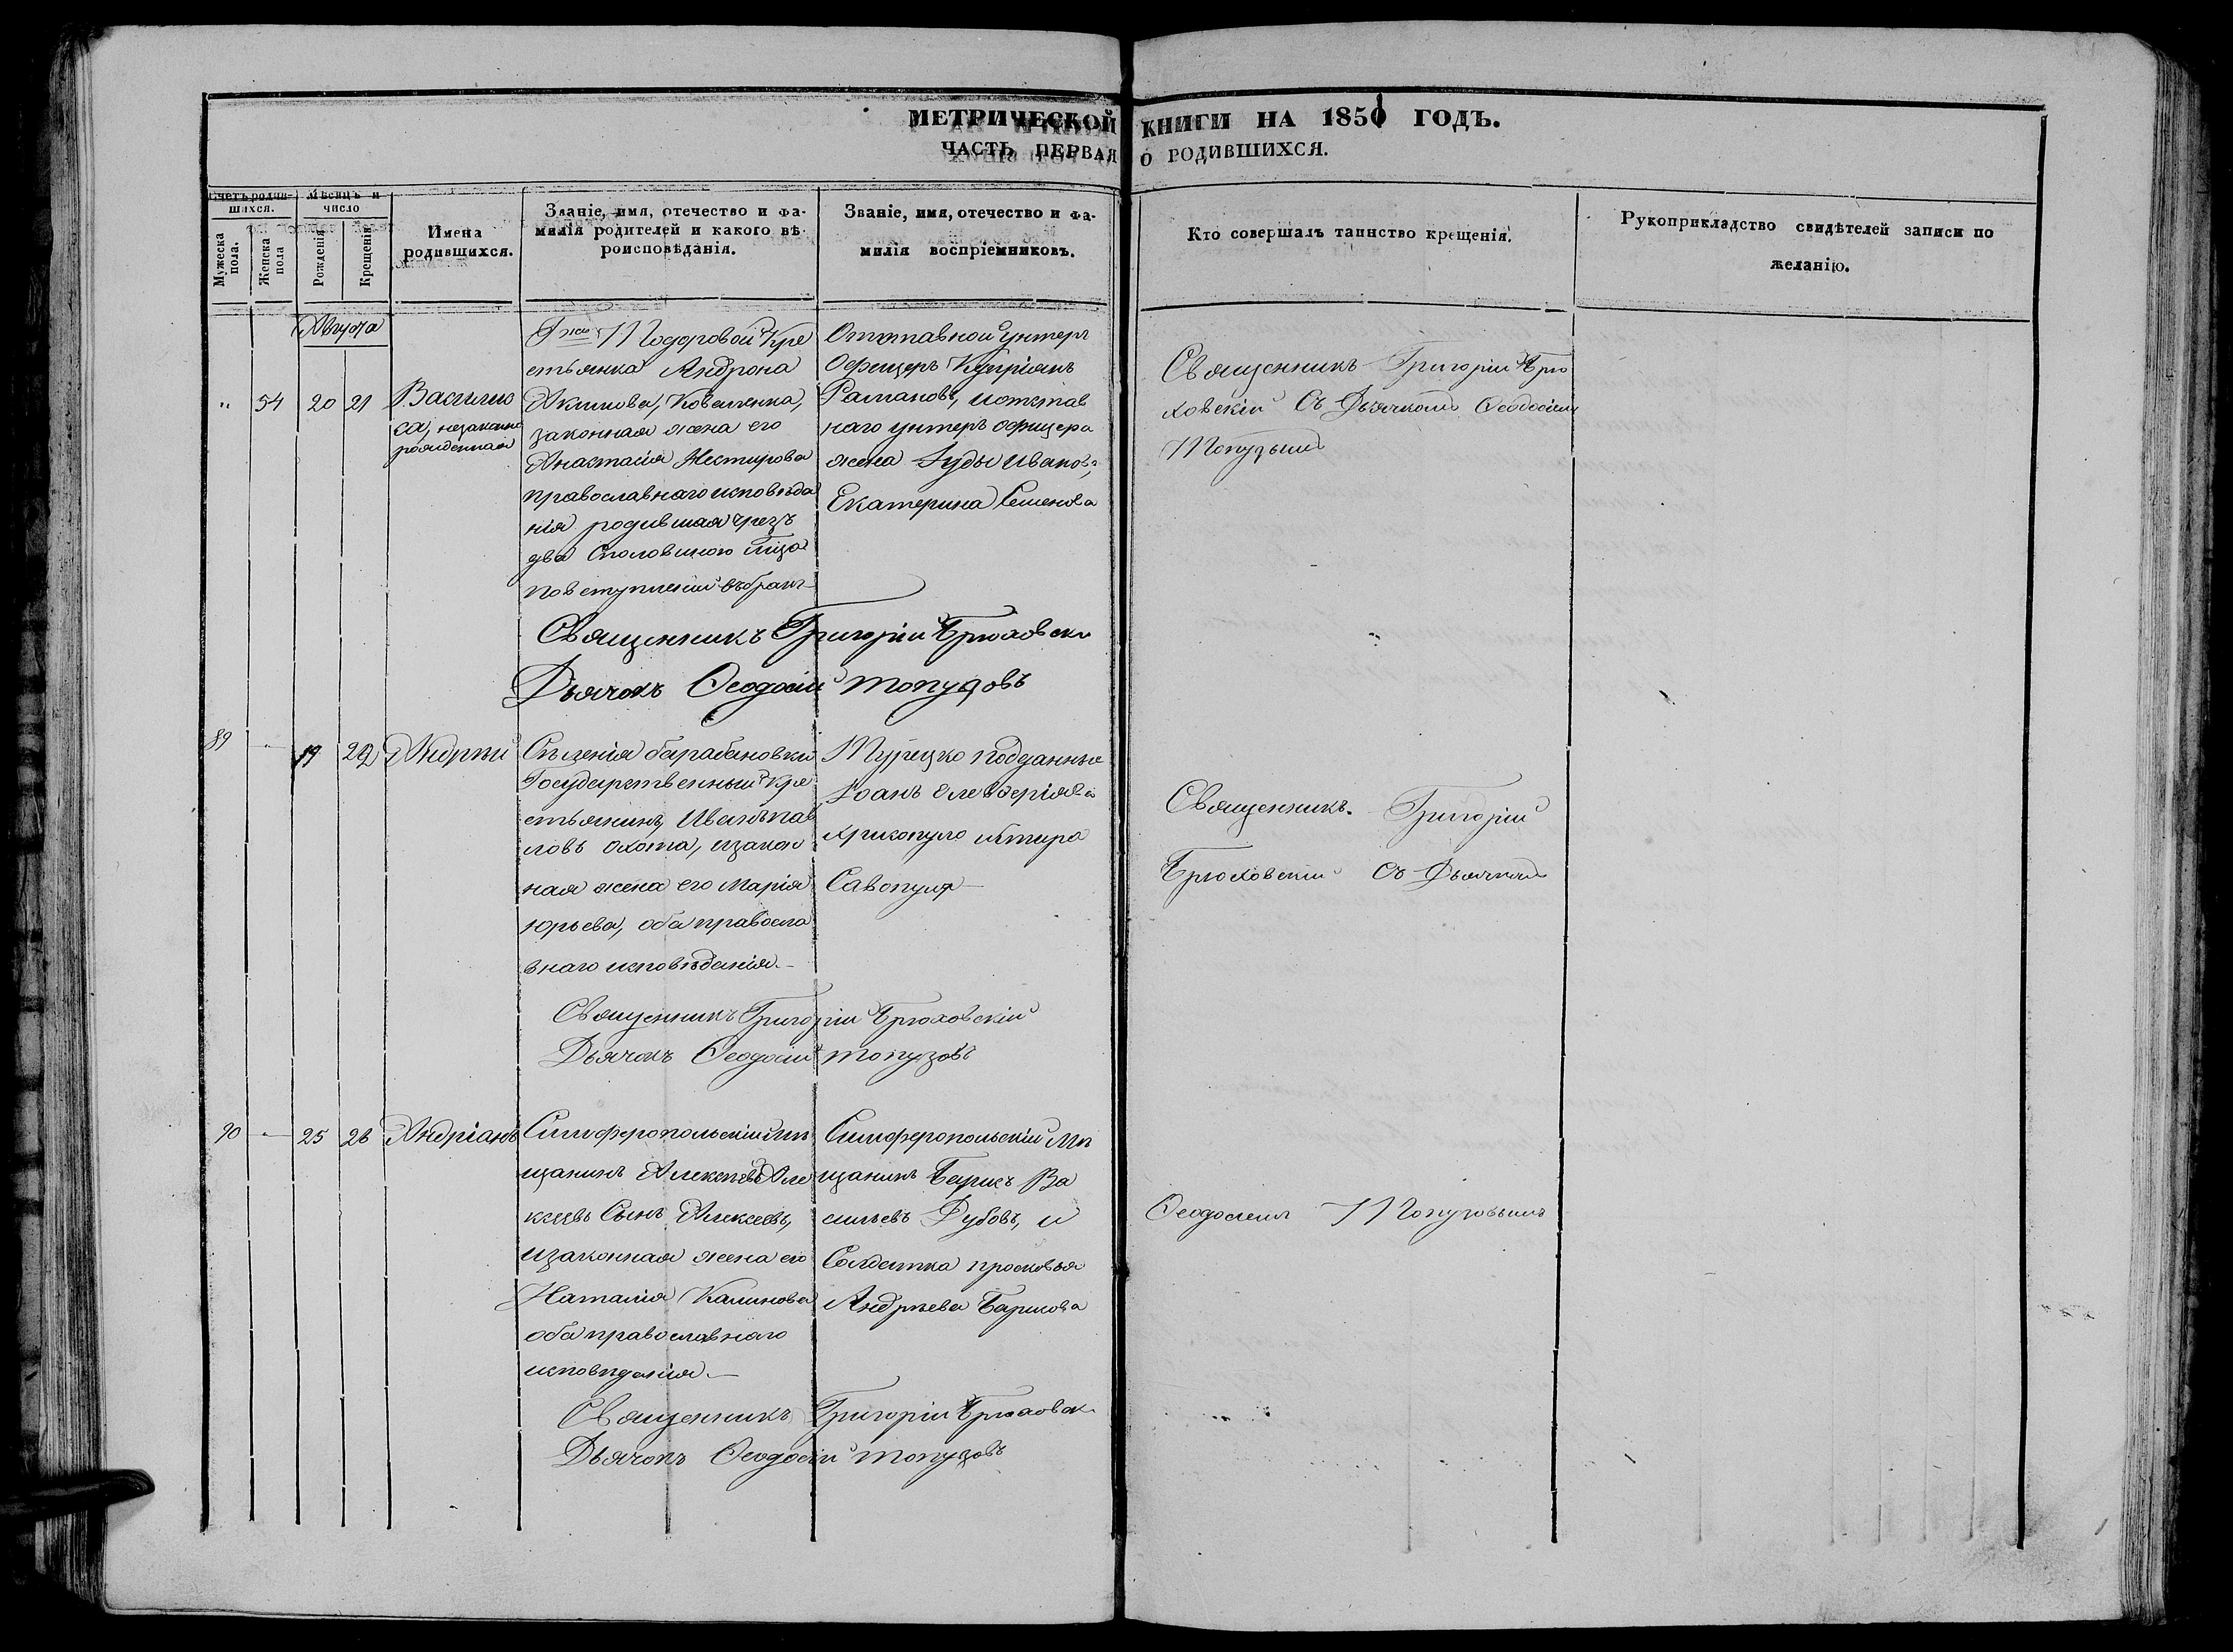 МЕТРИЧЕСКОЙ КНИГИ НА 1851 ГОДЪ.
ЧАСТЬ ПЕРВАЯ О РОДИВШИХСЯ.
Счетъ родив-
шихся.
Мужеска пола.
Женска пола
Мѣсяцъ и
число
Рожденія
Крещенія
Имена
родившихся.
Званіе, имя, отечество и фа-
милія родителей и какого вѣ-
роисповѣданія.
Званіе, имя, отечество и фа-
милія воспріемниковъ.
Кто совершалъ таинство крещенія.
Рукоприкладство свидѣтелей записи по
желанію.
Августа
" 54 20 21
Васили
са, незаконно
рожденная
Гжи Тодоровой Кре
стьянка Андрона
Акимова, Коваленка,
законная жена его
Анастасія Нестирова
православнаго исповѣда
нія родившая чрезъ
два споловиною мѣца
повступленіи въбракъ
Отставной унтеръ
Офицеръ Купріянъ
Рамановъ, иотстав
наго унтеръ офицера
жена Іуды Иванова,
Екатерина Семенова
Священникъ Григорій Брю
ховскій Съ Дьячкомъ Ѳеодосіем
Топузым
Священникъ Григорій Брюховскі
Дьячокъ Ѳеодосій Топузовъ
89 - 19 22 Андрей
Селенія барабановки
Государственный Кре
стьянинъ, Иванъ пав
ловъ Охота, изакон
ная жена его Марія
Юрьева, оба правосла
внаго исповѣданія.
Турецко подданные
Іоанъ Елевѳеріява
Савопуля
Священникъ Григорій
Брюховскій Съ Дьячком
Священникъ Григорій Брюховскій
Дьячокъ Ѳеодосій Топузовъ
90 - 25 26 Андріанъ
Симферопольскій мѣ
щанинъ Алексѣй Але
ксѣевъ Сынъ Алексеевъ,
изаконная жена его
Наталія Калинова
оба православнаго
исповѣданія
Симферопольскій Мѣ
щанинъ Барисъ Ва
сильевъ Дубовъ, и
Солдатка просковья
Андреева Барисова
Ѳеодосіемъ Топузовымъ
Священникъ Григорій Брюховск
Дьячокъ Ѳеодосій Топузовъ